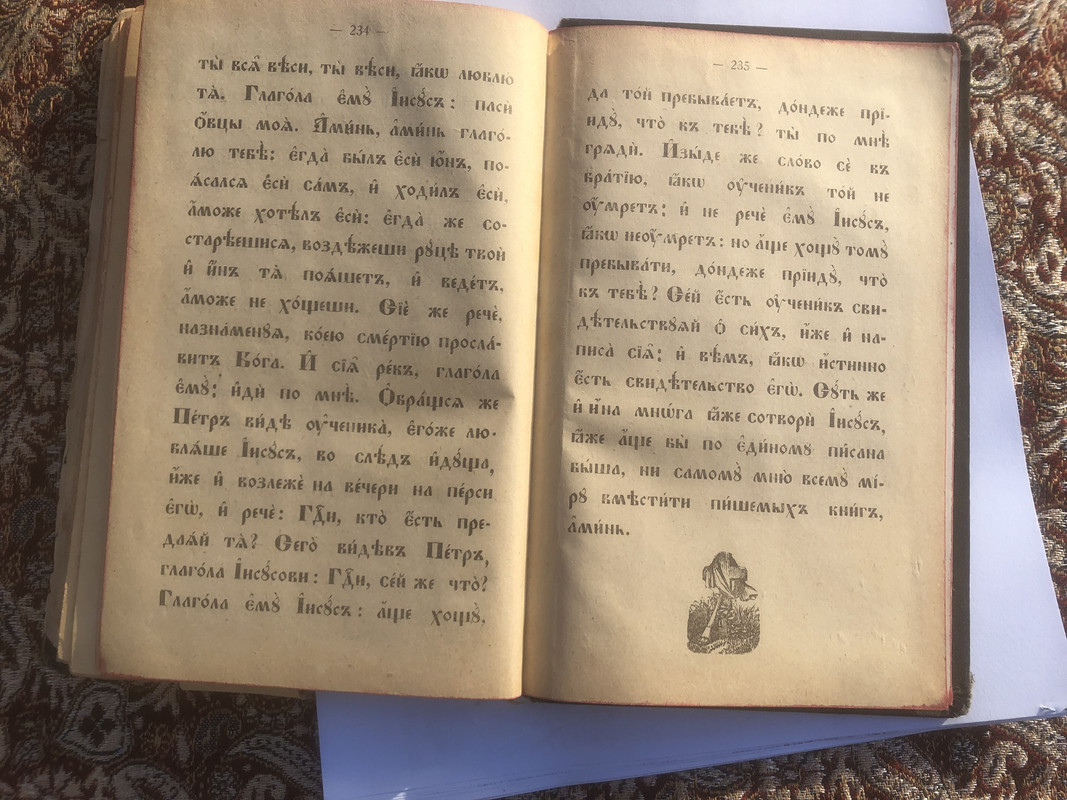 — 234 —
ты̀ всѧ̑ вѣ́си, ты̀ вѣ́си, ꙗ҆́кѡ люблю̀
тѧ̀. Глаго́ла є҆мꙋ̀ І҆исꙋ́съ: пасѝ
ѻ҆́вцы моѧ̑. А҆ми́нь, а҆ми́нь глаго́-
лю тебѣ̀: є҆гда̀ бы́лъ є҆сѝ ю҆́нъ, по-
ѧ́сался є҆сѝ са́мъ, и҆ ходи́лъ є҆сѝ,
а҆́може хотѣ́лъ є҆сѝ: є҆гда́ же со-
старѣ́ешися, воздѣ́жеши рꙋ́цѣ твоѝ
и҆ и҆́нъ тѧ̀ поѧ́шетъ, и҆ веде́тъ,
а҆́може не хо́щеши. Сїе́ же речѐ,
назна́менꙋя, ко́ею сме́ртїю просла́-
витъ Бо́га. И҆ сїѧ̑ ре́къ, глаго́ла
є҆мꙋ̀: и҆дѝ по мнѣ̀. Ѻ҆бра́щся же
Пе́тръ ви́дѣ оу҆ченика̀, є҆го́же лю-
блѧ́ше І҆исꙋ́съ, во слѣ́дъ и҆дꙋ́ща,
и҆́же и҆ возлежѐ на ве́чери на пе́рси
є҆гѡ̀, и҆ речѐ: Гдⷭ҇и, кто̀ є҆́сть пре-
даѧ́й тѧ̀? Сего̀ ви́дѣвъ Пе́тръ,
глаго́ла І҆исꙋ́сови: Гдⷭ҇и, се́й же что̀?
Глаго́ла є҆мꙋ̀ І҆исꙋ́съ: а҆́ще хощꙋ̀,
— 235 —
да то́й пребыва́етъ, до́ндеже прїи-
ндꙋ̀, что̀ къ тебѣ̀? ты̀ по мнѣ̀
грядѝ. И҆зы́де же сло́во сѐ къ
бра́тїю, ꙗ҆́кѡ оу҆чени́къ то́й не
оу҆́мретъ: и҆ не речѐ є҆мꙋ̀ І҆исꙋ́съ,
ꙗ҆́кѡ не оу҆́мретъ: но а҆́ще хощꙋ̀ томꙋ̀
пребыва́ти, до́ндеже прїиндꙋ̀, что̀
къ тебѣ̀? Се́й є҆́сть оу҆чени́къ сви-
дѣ́тельствꙋяй ѻ҆ си́хъ, и҆́же и҆ на-
писа̀ сїѧ̑: и҆ вѣ́мъ, ꙗ҆́кѡ и҆́стинно
є҆́сть свидѣ́тельство є҆гѡ̀. Сꙋ́ть же
и҆ и҆́на мнѡ́га ꙗ҆́же сотворѝ І҆исꙋ́съ,
ꙗ҆́же а҆́ще бы̀ по є҆ди́номꙋ пи́сана
бы́ша, ни самомꙋ̀ мню̀ всемꙋ̀ мі́-
рꙋ вмѣсти́ти пи́шемыхъ кни́гъ,
а҆ми́нь.